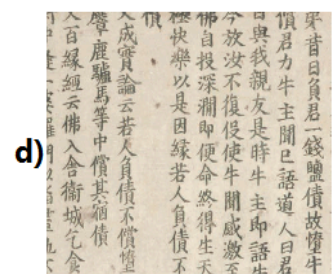 d)
昔日負君一錢鹽債故墮牛
償君力牛主聞已語道人曰君
日與我親友是時牛主即語
今放汝不復役使牛聞感激至
佛自投深澗即便命終得生天
極快樂以是因緣若人負債不
債
又成實論云若人負債不償墮
麞鹿驢馬等中償其宿債
又百緣經云佛入舍衛城乞食
一婆羅門以指畫地